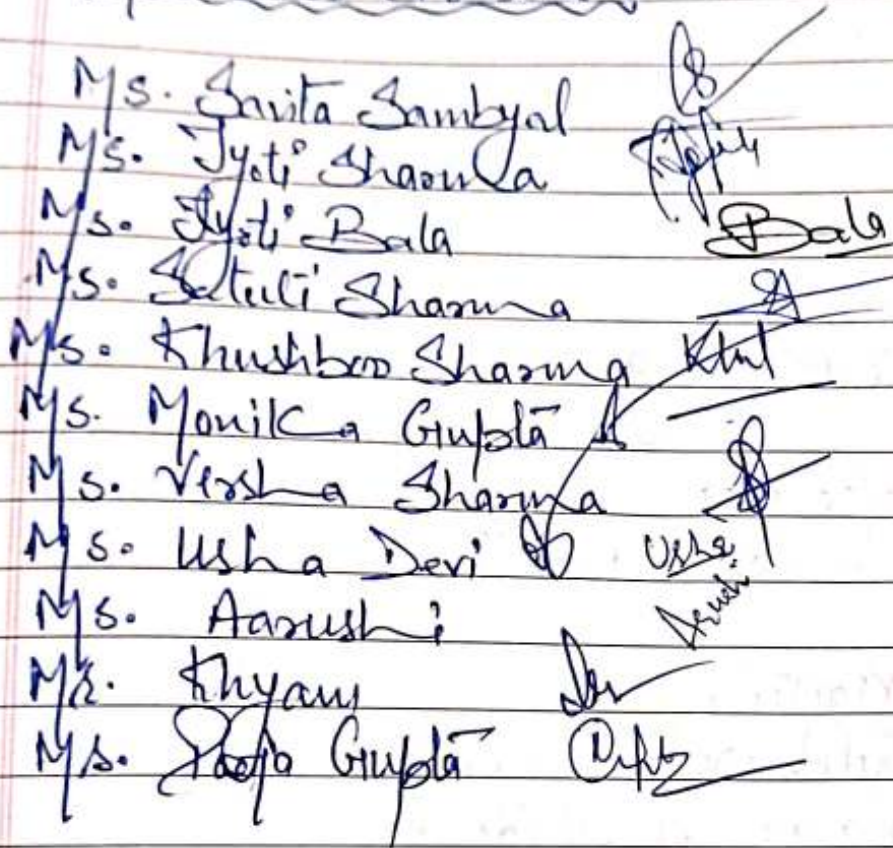 Ms. Savita Sambyal
Ms. Jyoti Sharma
Ms. Jyoti Bala Bala
Ms. Sharma
Ms. Khushboo Sharma
Ms. Monika Gupta
Ms. Versha Sharma
Ms. Usha Devi Usha
Ms. Aarushi Arushi
Mr. Khyam
Ms. Pooja Gupta